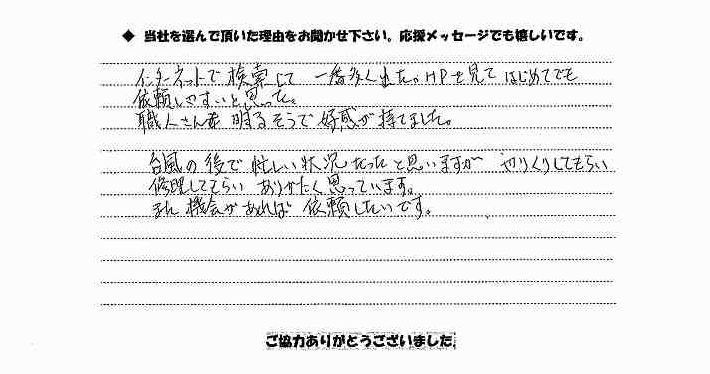 ◆ 当社を選んで頂いた理由をお聞かせ下さい。応援メッセージでも嬉しいです。
インターネットで検索して 一番多く出た。HPを見て はじめてでも
依頼しやすいと思った。
職人さんも 明るそうで好感が持てました。
台風の後で忙しい状況だったと思いますが やりくりしてもらい
修理してもらい ありがたく思っています。
また機会があれば 依頼したいです。
ご協力ありがとうございました。